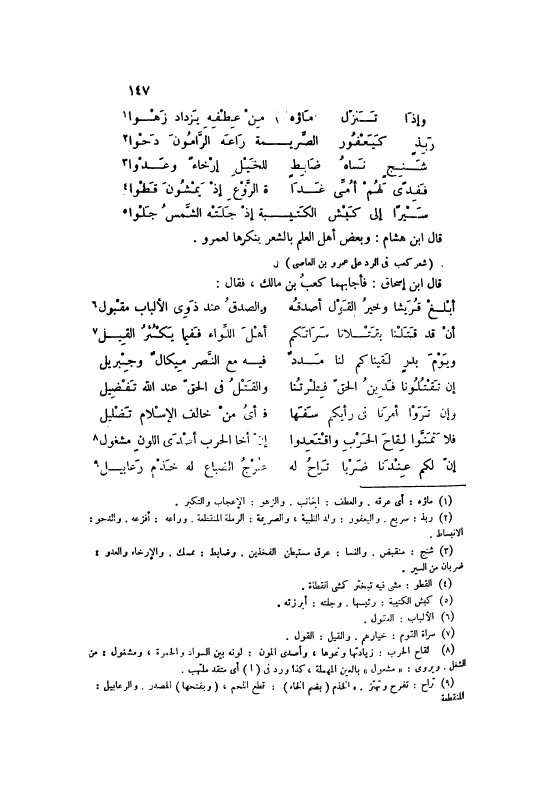 ١٤٧
وإذا تَنَزَّل ماؤه مِنْ عِطْفِهِ يَزْداد زَهْوا١
رَبِذٍ كَيَعْفُور الصَّرِيمة راعَهُ الرَّامُونَ دَحْوا٢
شَنِجٍ نَساهُ ضابِطٍ للخَيْلِ إرْخاءً وعَدْوا٣
فَفِدًى لَهُمْ أُمِّي غَدَا ةَ الرَّوْعِ إذْ يَمْشُونَ قَطْوا٤
سَيْرًا إلى كَبْش الكَتِيبة إذْ جَلَتْهُ الشَّمْسُ جَلْوا٥
قال ابن هشام : وبعض أهل العلم بالشعر ينكرها لعمرو .
( شعر كعب فى الرد على عمرو بن العاصى )
قال ابن إسحاق : فأجابهما كعبُ بن مالك ، فقال :
أبْلِغْ قُرَيشا وخيرُ القَوْل أصدقُه والصدقُ عند ذَوِى الألباب مقبول٦
أنْ قد قَتَلْنا بقَتْلانا سَراتَكم أهْلَ اللِّواء فَفيما يَكْثُرُ القِيلُ٧
ويَوْمَ بدرٍ لَقِيناكم لنا مَدَدٌ فيه مع النَّصر مِيكالٌ وجِبْرِيل
إن تَقْتُلُونا فَدِينُ الحَقِّ فِطْرَتُنا والقَتْلُ فى الحَقّ عند الله تَفْضِيل
وإن تَرَوْا أمرَنا فى رأيكم سَفَهًا فرأىُ مَنْ خالف الإسْلامَ تَضْلِيل
فلا تَمَنَّوْا لِقاحَ الحَرْبِ واقْتَعِدوا إنَّ أخا الحرب أصْدَى اللونِ مشغول٨
إنَّ لكم عِنْدَنا ضَرْبا تَراحُ له عُرْجُ الضِّباع له خَذْمٌ رعابيل٩
(١) ماؤه : أى عرقه . والعطف : الجانب . والزهو : الإعجاب والتكبر .
(٢) ربذ : سريع . واليعفور : ولد الظبية ، والصريمة : الرملة المنقطعة . وراعه : أفزعه . والدحو :
الانبساط .
(٣) شنج : منقبض . والنسا : عرق مستبطن الفخذين . وضابط : ممسك . والإرخاء والعدو :
ضربان من السير .
(٤) القطو : مشى فيه تبختر كمشى القطاة .
(٥) كبش الكتيبة : رئيسها . وجلته : أبرزته .
(٦) الألباب : العقول .
(٧) سراة القوم : خيارهم . والقيل : القول .
(٨) لقاح الحرب : زيادتها ونموها ، وأصدى اللون : لونه بين السواد والحمرة ، ومشغول : من
الشغل . ويروى : « مشعول » بالعين المهملة ، كذا ورد فى (ا) أى متقد ملتهب .
(٩) تراح : تفرح وتهتز . والخذم (بضم الخاء) : قطع اللحم ، (وبفتحها) المصدر . والرعابيل :
المنقطعة